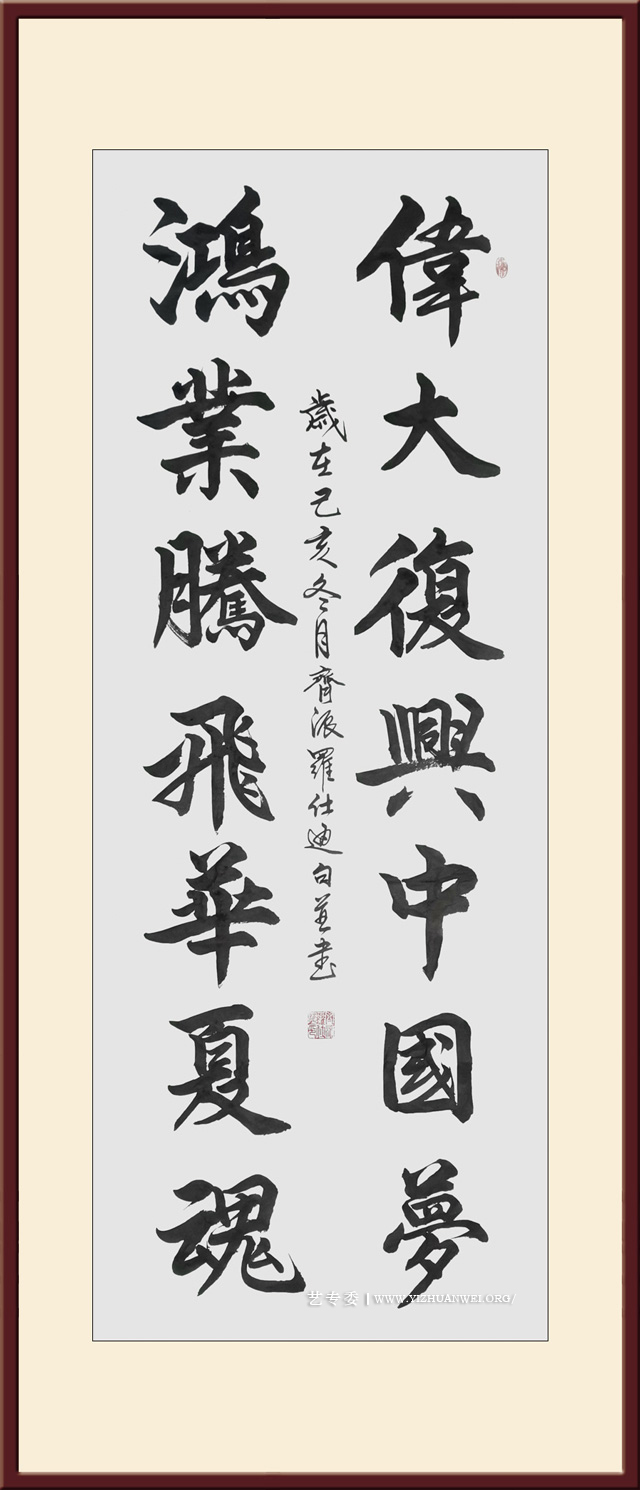 偉大復興中國夢
鴻業騰飛華夏魂
歲在己亥冬月齊派羅仕迪句並書
艺专委 | WWW.YIZHUANWEI.ORG/